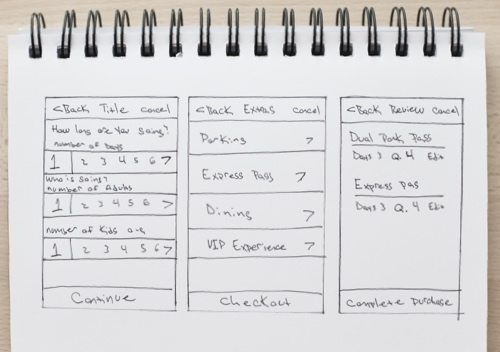 <Back Title cancel
How long are you going?
number of Days
1 2 3 4 5 6 >
Who is going?
number of Adults
1 2 3 4 5 6 >
number of Kids
1 2 3 4 5 6 >
Continue
<Back Extras cancel
Parking >
Express Pass >
Dining >
VIP Experience >
Checkout
<Back Review cancel
Dual Park Pass
Days 3 Q. 4 Edit
Express pas
Days 3 Q. 4 Edit
Complete Purchase